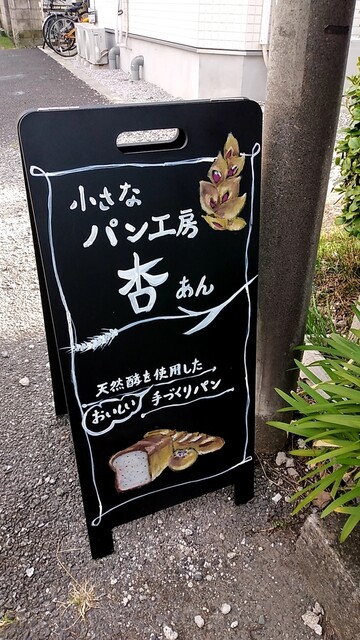 小さな
パン工房
杏 あん
天然酵母を使用した
おいしい 手づくりパン